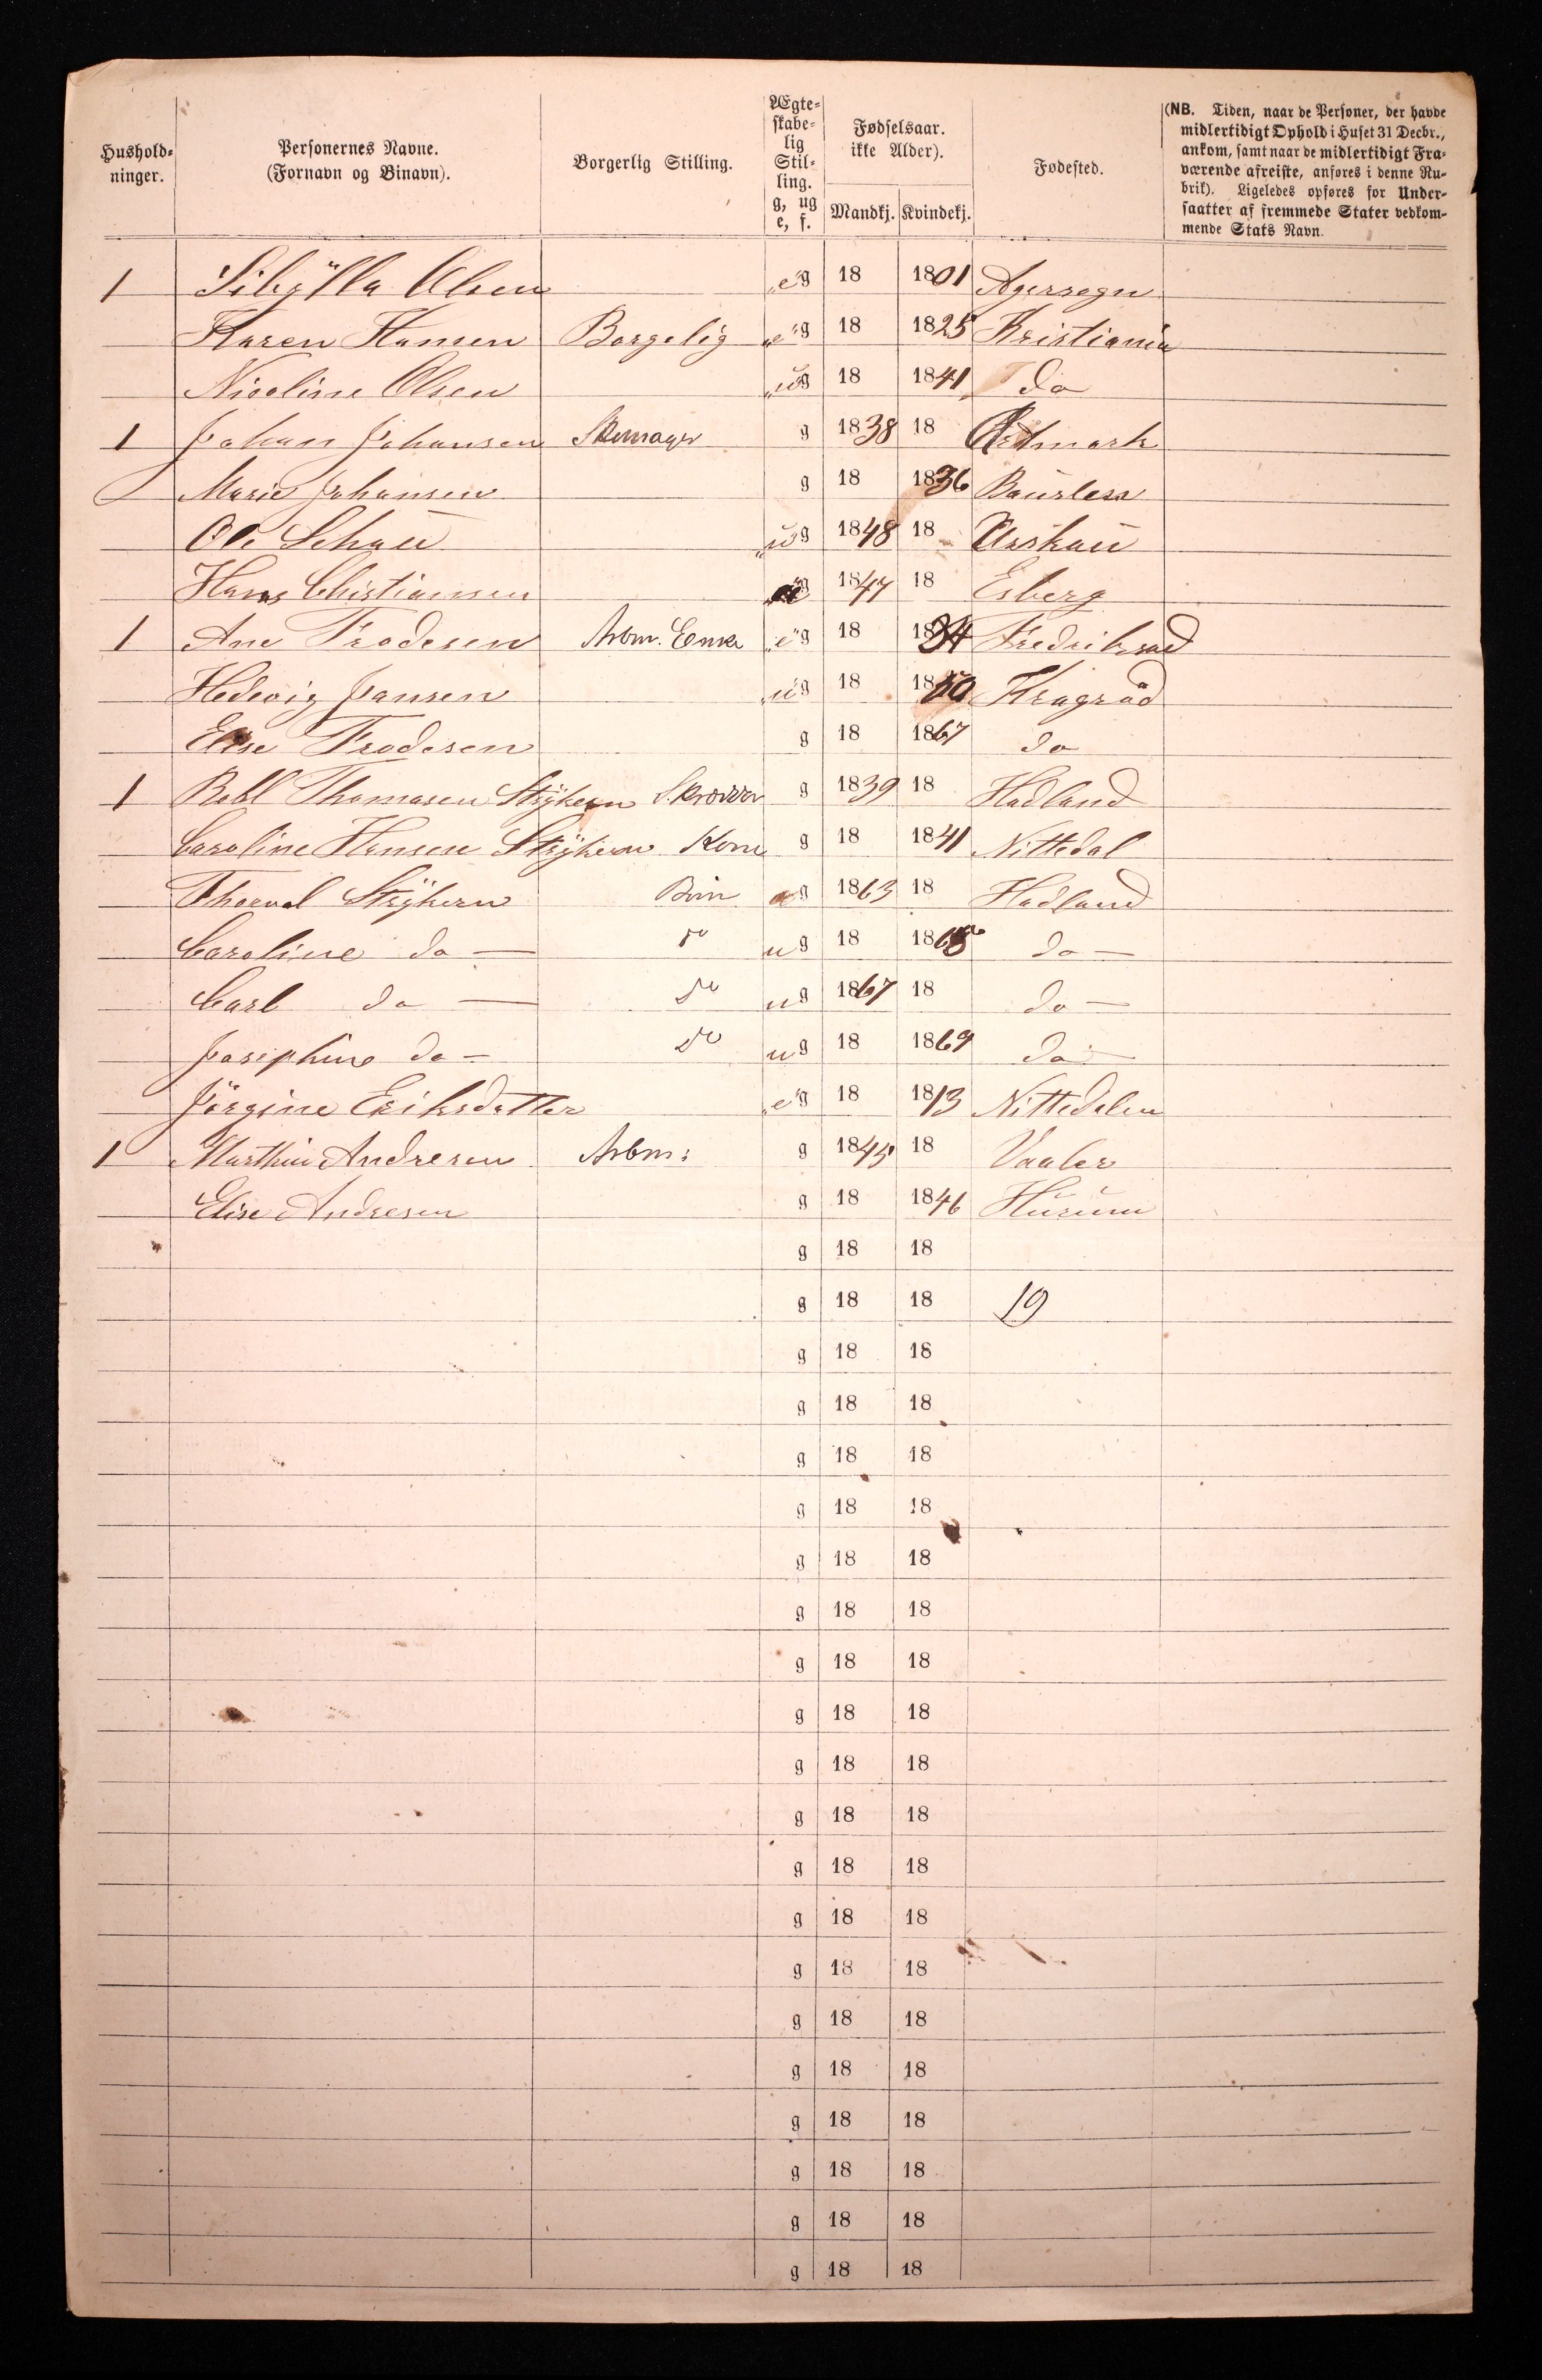 Hushold-ninger. Personernes Navne. (Fornavn og Binavn). Borgerlig Stilling. Ægte-skabe-lig Stil-ling. g, ug e, f. Fødselsaar. ikke Alder). Mandkj. Kvindekj. Fødested. (NB. Tiden, naar de Personer, der havde midlertidigt Ophold i Huset 31 Decbr., ankom, samt naar de midlertidigt Fra-værende afreiste, anføres i denne Ru-brik). Ligeledes opføres for Under-saatter af fremmede Stater vedkom-mende Stats Navn.
1 Sibÿlla Olsen "e"g 18 1801 Agersogn
Karen Hansen Borgelig "e"g 18 1825 Kristiania
Nicoline Olsen "u"g 18 1841 do
1 Johan Johansen Skomager g 1838 18
Marie Johansen g 18 1836
Ole Schou "u"g 1848 18 Urskau
Hans Christiansen g 1847 18 Esberg
1 Ane Frodesen Arbm. Enke "e"g 18 1834 Fredrikstad
Hedevig Jansen "u"g 18 1850 Kragrød
Elise Frodesen g 18 1867 do
1 Thomasen Strÿkern g 1839 18 Hadland
Caroline Hansen Strÿkern Kone g 18 1841 Nittedal
Thorval Strÿkern Børn ug 1863 18 Hadland
Caroline do — do ug 18 1865 do —
Carl do — do ug 1867 18 do —
Josephine do — do ug 18 1869 do —
Jörgine Eriksdatter "e"g 18 1813 Nittedalen
1 Marthin Andresen Arbm: g 1845 18 Vaaler
Elise Andresen g 18 1846 Hurum
g 18 18
g 18 18 19
g 18 18
g 18 18
g 18 18
g 18 18
g 18 18
g 18 18
g 18 18
g 18 18
g 18 18
g 18 18
g 18 18
g 18 18
g 18 18
g 18 18
g 18 18
g 18 18
g 18 18
g 18 18
g 18 18